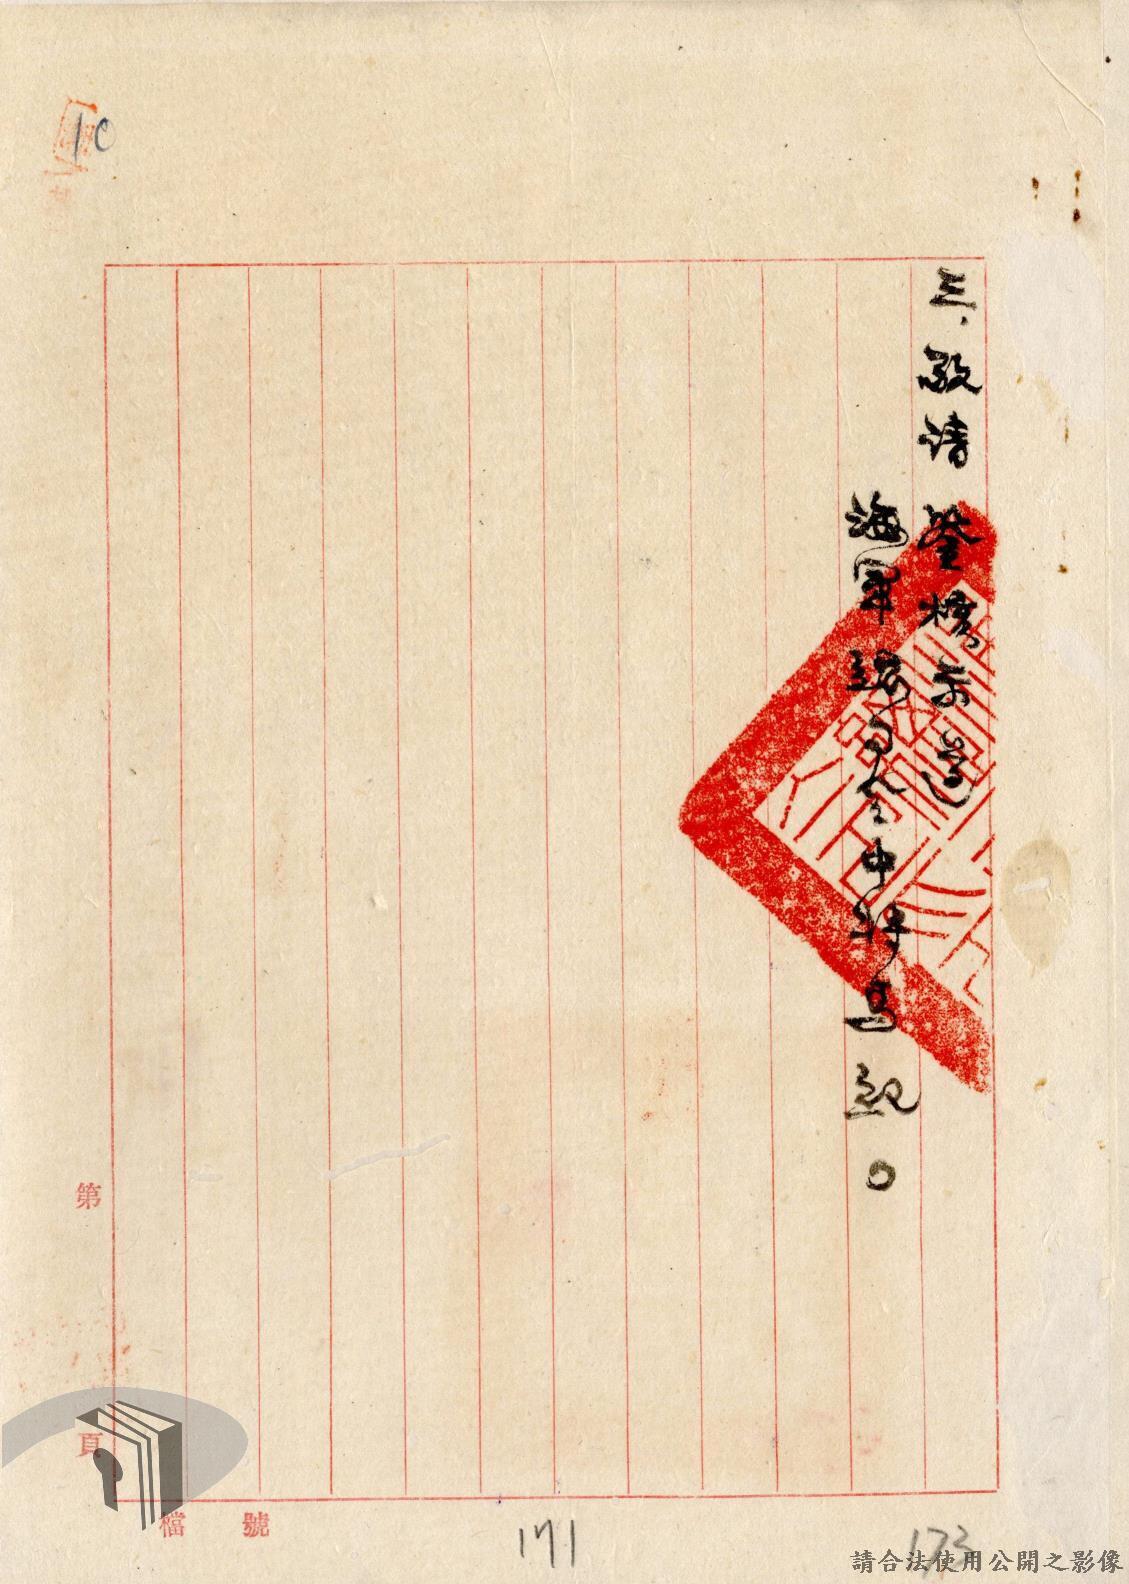 三、敬請鑒核示遵
海軍總司令中將馬紀〇
10
第 頁
檔 號
171
173
請合法使用公開之影像